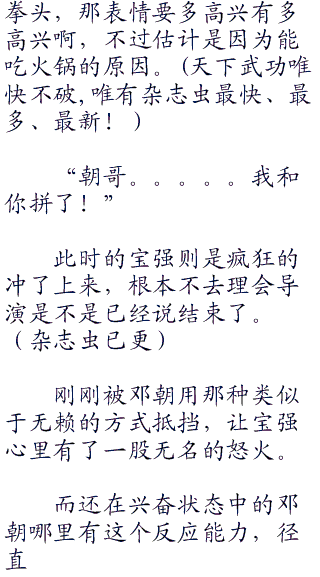 拳头，那表情要多高兴有多
高兴啊，不过估计是因为能
吃火锅的原因。(天下武功唯
快不破,唯有杂志虫最快、最
多、最新！)
“朝哥。。。。。我和
你拼了！”
此时的宝强则是疯狂的
冲了上来，根本不去理会导
演是不是已经说结束了。
（杂志虫已更）
刚刚被邓朝用那种类似
于无赖的方式抵挡，让宝强
心里有了一股无名的怒火。
而还在兴奋状态中的邓
朝哪里有这个反应能力，径
直